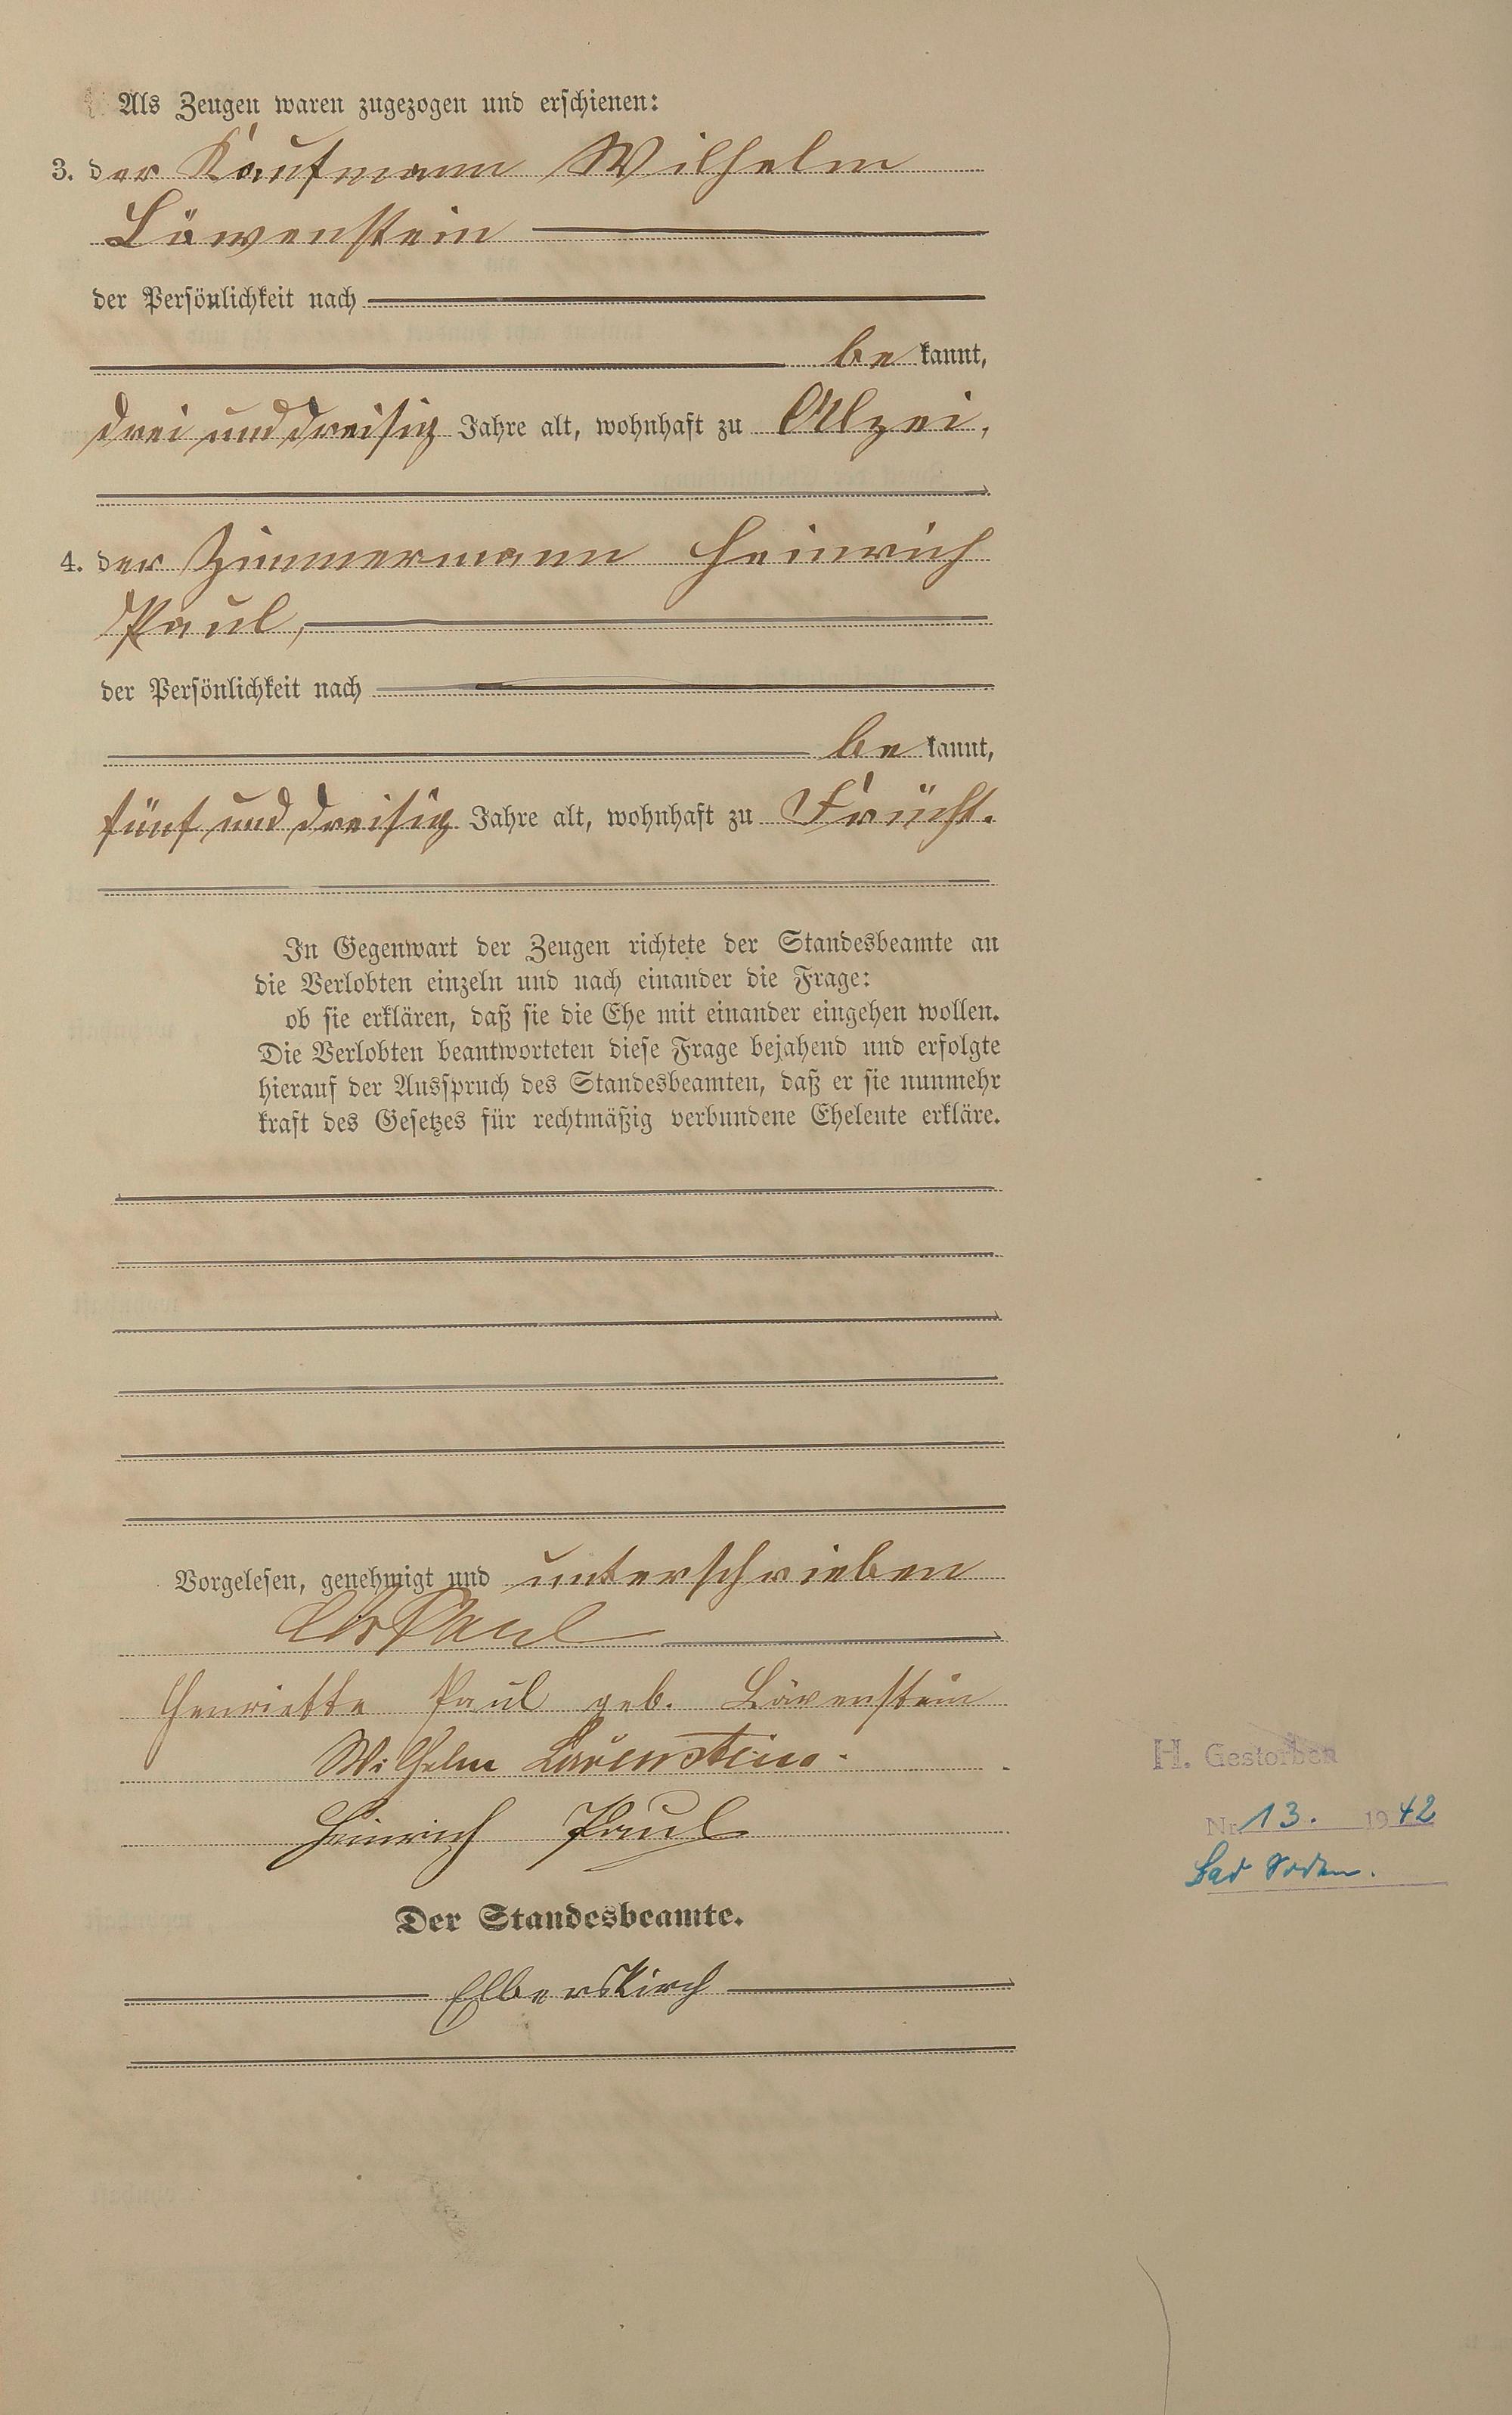 Als Zeugen waren zugezogen und erschienen:
3. der Kaufmann Wilhelm
Löwenstein
der Persönlichkeit nach
be kannt,
drei und dreisig Jahre alt, wohnhaft zu Alzei,
4. der Zimmermann Heinrich
Paul,
der Persönlichkeit nach
be kannt,
fünf und dreisig Jahre alt, wohnhaft zu Frücht.
In Gegenwart der Zeugen richtete der Standesbeamte an
die Verlobten einzeln und nach einander die Frage:
ob sie erklären, daß sie die Ehe mit einander eingehen wollen.
Die Verlobten beantworteten diese Frage bejahend und erfolgte
hierauf der Ausspruch des Standesbeamten, daß er sie nunmehr
kraft des Gesetzes für rechtmäßig verbundene Eheleute erkläre.
Vorgelesen, genehmigt und unterschrieben
Paul
Henriette Paul geb. Lövenstein
Wilhelm Lövenstein.
Heinrich Paul
H. Gestorben
Nr. 13. 1942
Bad Soden.
Der Standesbeamte.
Elberskirch